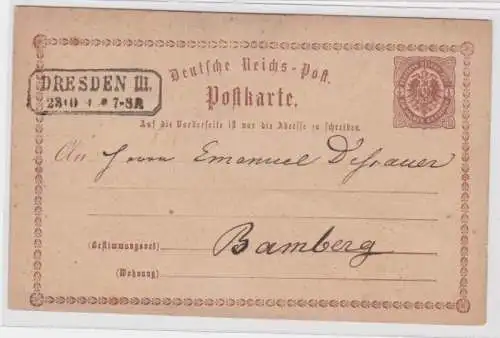 DRESDEN III.
7-8A
Deutsche Reichs-Post.
Postkarte.
Auf die Vorderseite ist nur die Adresse zu schreiben.
An Herrn Emanuel Dessauer
(Bestimmungsort) Bamberg
(Wohnung)